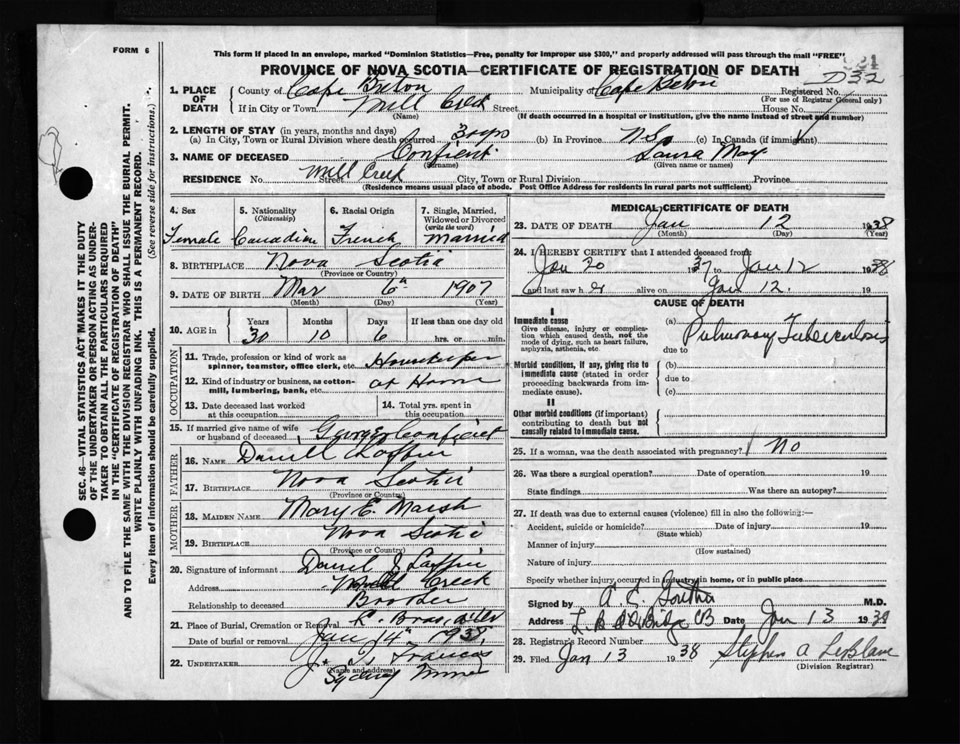 FORM 6
This form if placed in an envelope, marked "Dominion Statistics—Free, penalty for improper use $300," and properly addressed will pass through the mail "FREE"
PROVINCE OF NOVA SCOTIA—CERTIFICATE OF REGISTRATION OF DEATH
1. PLACE OF DEATH
County of Cape Breton Municipality of Cape Breton Registered No.
(For use of Registrar General only)
If in City or Town Mill Creek Street House No.
(Name) (If death occurred in a hospital or institution, give the name instead of street and number)
2. LENGTH OF STAY (in years, months and days)
(a) In City, Town or Rural Division where death occurred 30 yrs (b) In Province N.S. (c) In Canada (if immigrant)
3. NAME OF DECEASED Confient Laura May
(Surname) (Given name or names)
RESIDENCE No. Mill Creek Street City, Town or Rural Division Province
(Residence means usual place of abode. Post Office Address for residents in rural parts not sufficient)
4. Sex Female
5. Nationality (Citizenship) Canadian
6. Racial Origin French
7. Single, Married, Widowed or Divorced (write the word) Married
8. BIRTHPLACE Nova Scotia
(Province or Country)
9. DATE OF BIRTH Mar 6th 1907
(Month) (Day) (Year)
10. AGE in Years Months Days If less than one day old
30 10 6 hrs. or min.
OCCUPATION
11. Trade, profession or kind of work as spinner, teamster, office clerk, etc. Housekeeper
12. Kind of industry or business, as cotton-mill, lumbering, bank, etc. at Home
13. Date deceased last worked at this occupation
14. Total yrs. spent in this occupation
15. If married give name of wife or husband of deceased George Confient
FATHER
16. NAME Daniel Laffin
17. BIRTHPLACE Nova Scotia
(Province or Country)
MOTHER
18. MAIDEN NAME Mary E. Marsh
19. BIRTHPLACE Nova Scotia
(Province or Country)
20. Signature of informant Daniel J Laffin
Address Mill Creek
Relationship to deceased Brother
21. Place of Burial, Cremation or Removal
Date of burial or removal Jan 14th 1938
22. UNDERTAKER
(Name and address)
Sydney Mines
MEDICAL CERTIFICATE OF DEATH
23. DATE OF DEATH Jan 12 1938
(Month) (Day) (Year)
24. I HEREBY CERTIFY that I attended deceased from:
Jan 20 1937 to Jan 12 1938
and last saw her alive on Jan 12. 19
CAUSE OF DEATH
I
Immediate cause
Give disease, injury or complication which caused death, not the mode of dying, such as heart failure, asphyxia, asthenia, etc.
(a) Pulmonary Tuberculosis
due to
Morbid conditions, if any, giving rise to immediate cause (stated in order proceeding backwards from immediate cause).
(b)
due to
(c)
II
Other morbid conditions (if important) contributing to death but not causally related to immediate cause.
25. If a woman, was the death associated with pregnancy? No
26. Was there a surgical operation? Date of operation 19
State findings Was there an autopsy?
27. If death was due to external causes (violence) fill in also the following:—
Accident, suicide or homicide? Date of injury 19
(State which)
Manner of injury
(How sustained)
Nature of injury
Specify whether injury occurred in industry in home, or in public place
Signed by M.D.
Address Date Jan 13 1938
28. Registrar's Record Number
29. Filed Jan 13 1938 Stephen A LeBlanc
(Division Registrar)
SEC. 46—VITAL STATISTICS ACT MAKES IT THE DUTY
OF THE UNDERTAKER OR PERSON ACTING AS UNDERTAKER TO OBTAIN ALL THE PARTICULARS REQUIRED
IN THE "CERTIFICATE OF REGISTRATION OF DEATH"
AND TO FILE THE SAME WITH THE DIVISION REGISTRAR WHO SHALL ISSUE THE BURIAL PERMIT.
WRITE PLAINLY WITH UNFADING INK. THIS IS A PERMANENT RECORD.
Every item of information should be carefully supplied. (See reverse side for instructions.)